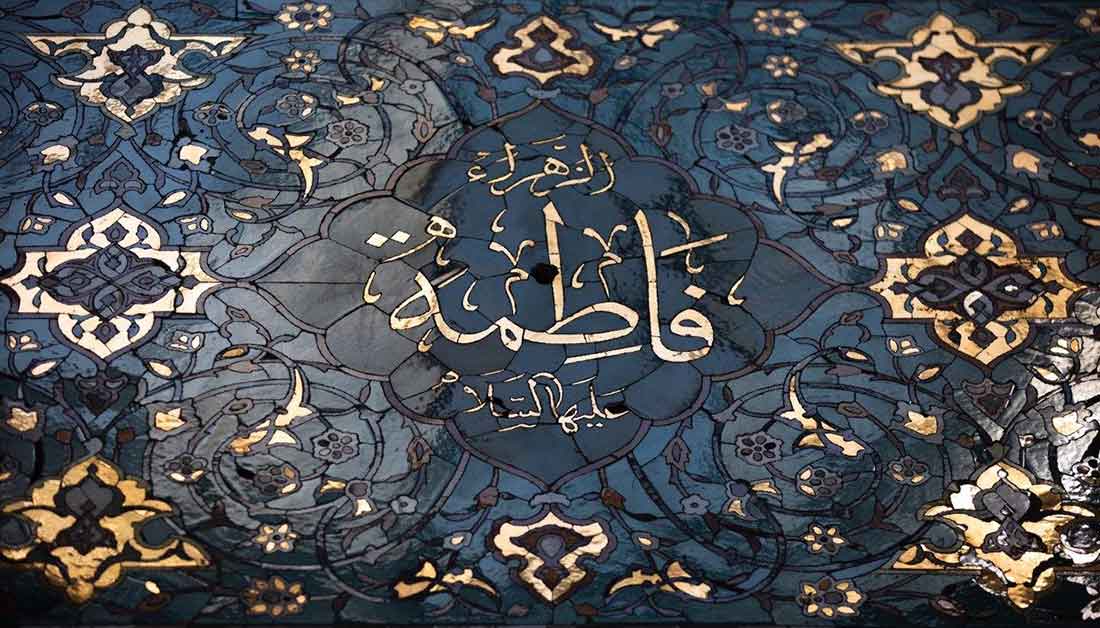 الزَّهْرَاءُ
فَاطِمَة
عَلَيهَا السَّلَامُ